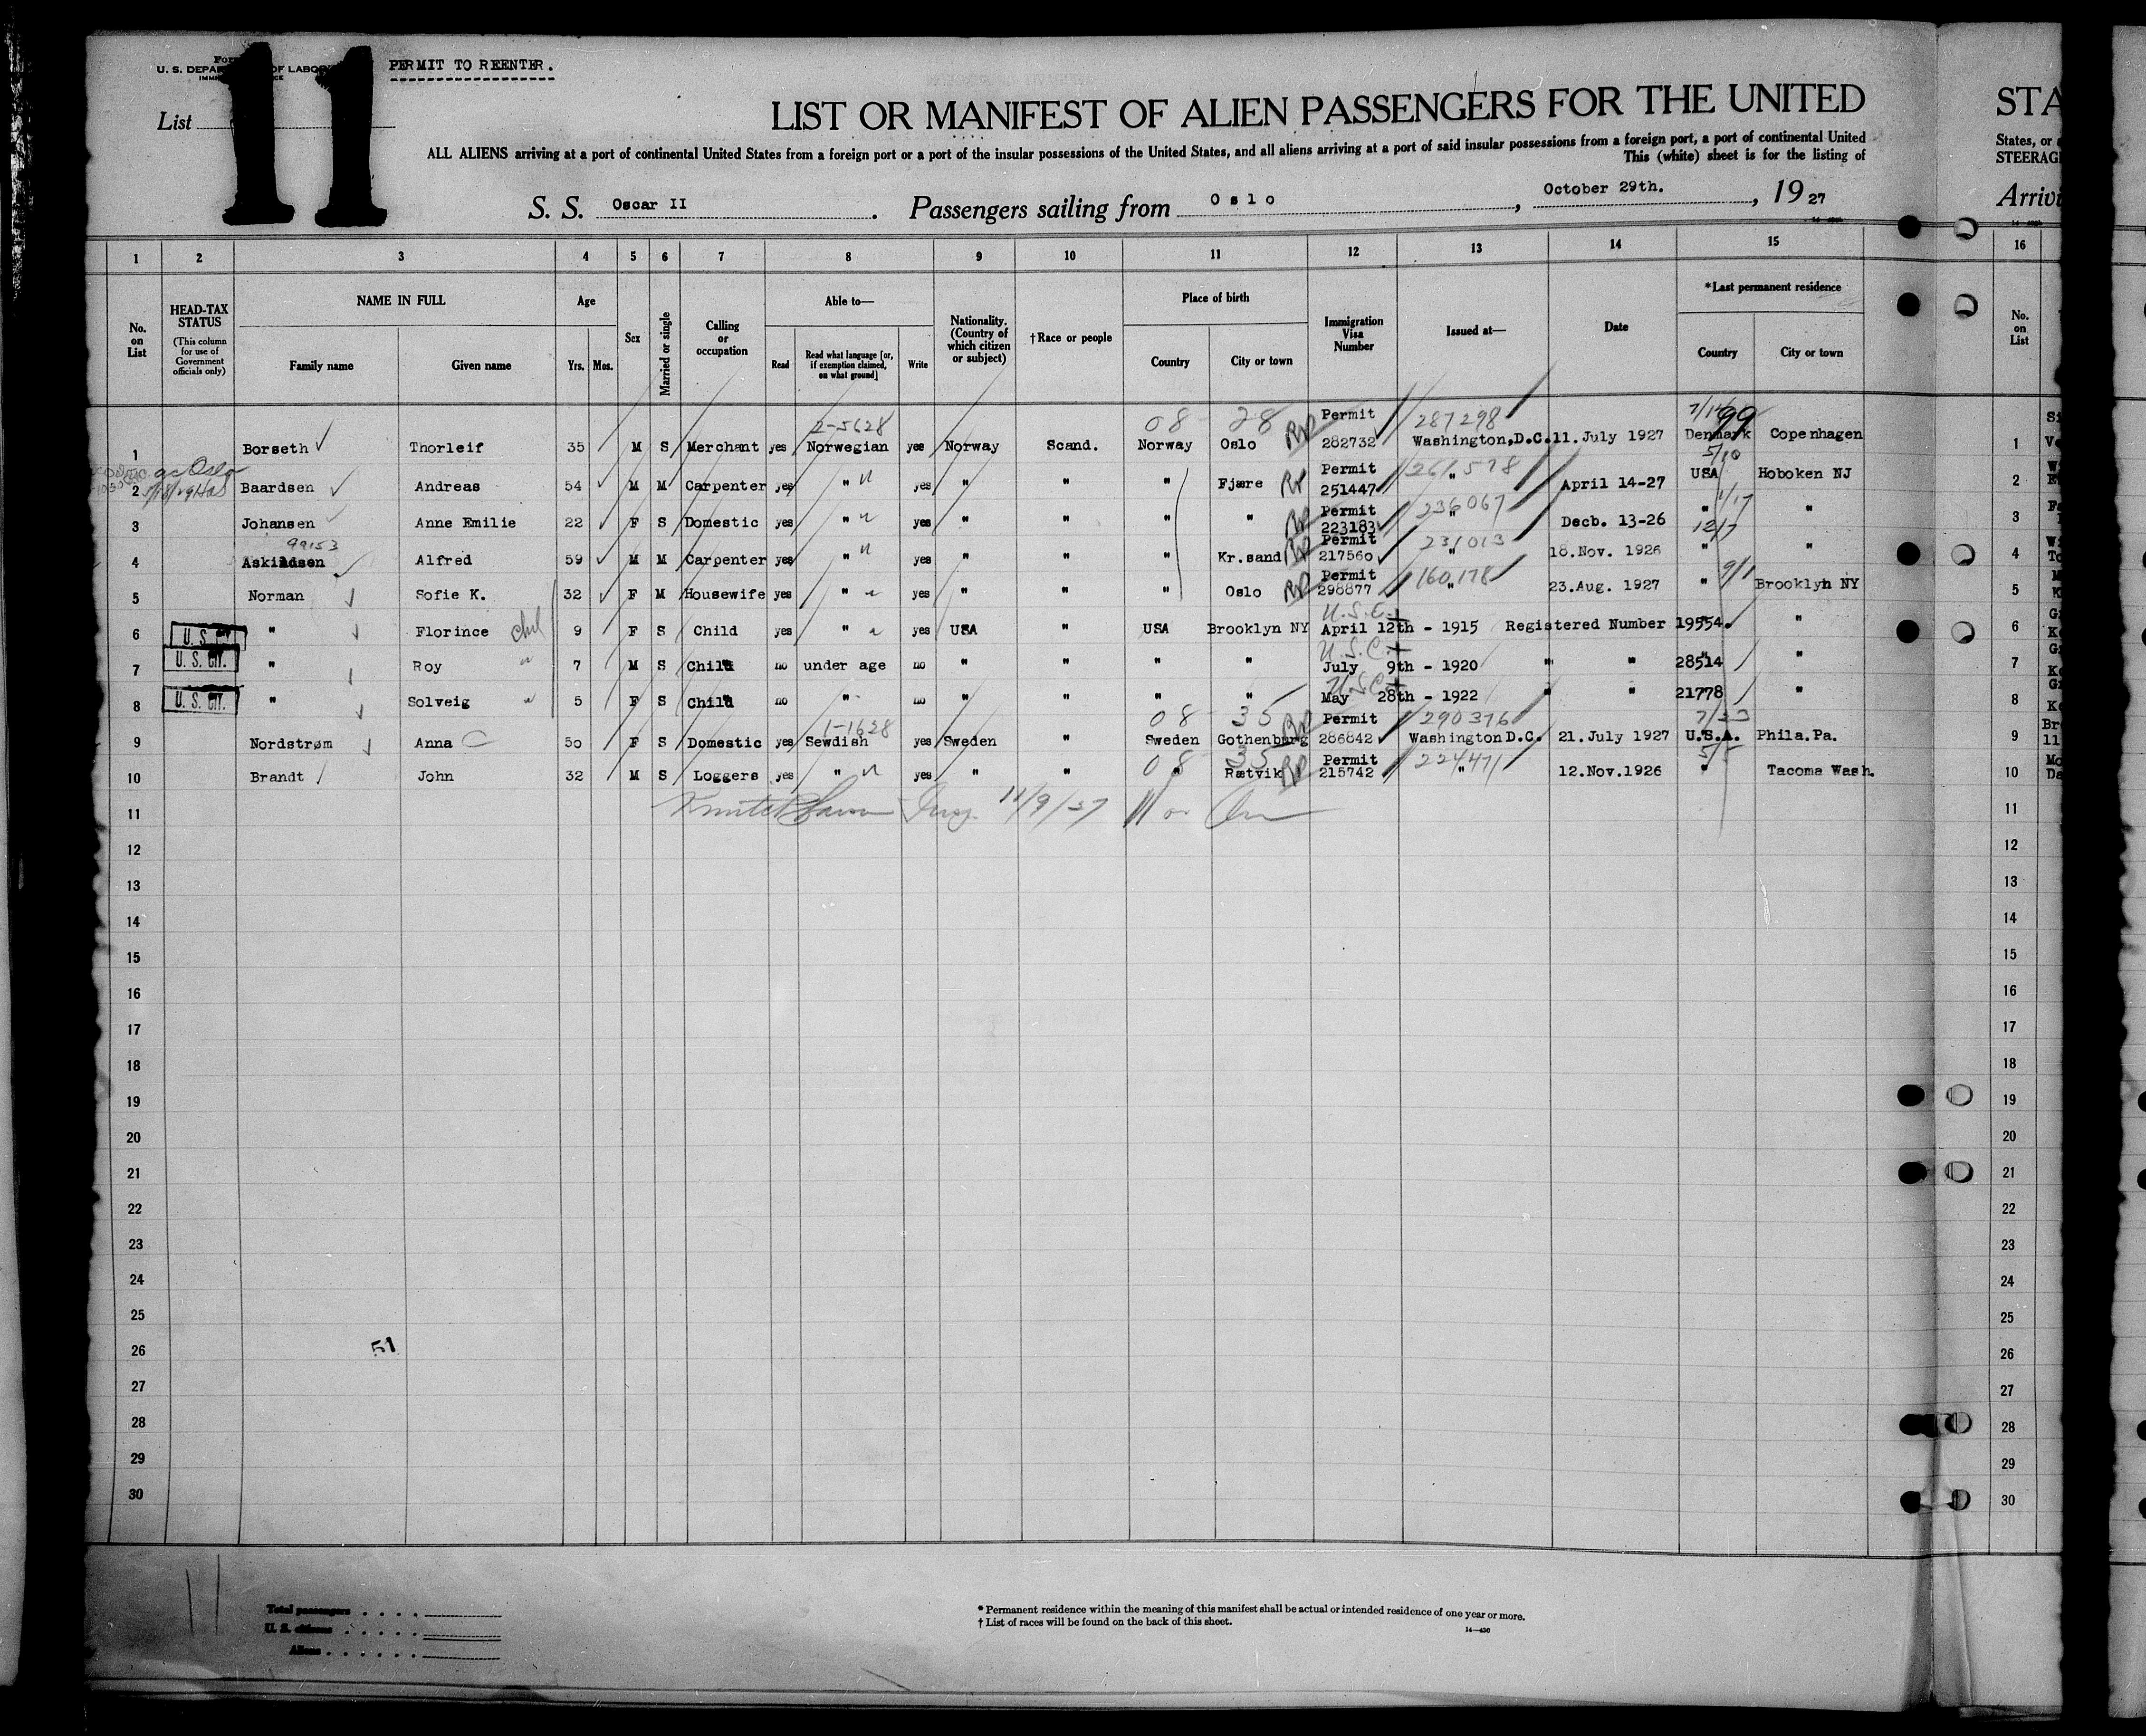 Form
U. S. DEPAR OF LABOR
PERMIT TO REENTER.
11
List
LIST OR MANIFEST OF ALIEN PASSENGERS FOR THE UNITED
STA
ALL ALIENS arriving at a port of continental United States from a foreign port or a port of the insular possessions of the United States, and all aliens arriving at a port of said insular possessions from a foreign port, a port of continental United
States, or a
This (white) sheet is for the listing of
STEERAG
S. S. Oscar II. Passengers sailing from Oslo, October 29th., 1927
Arrivi
1 2 3 4 5 6 7 8 9 10 11 12 13 14 15 16
No. on List
HEAD-TAX STATUS (This column for use of Government officials only)
NAME IN FULL
Family name Given name
Age
Yrs. Mos.
Sex
Married or single
Calling or occupation
Able to—
Read
Read what language [or, if exemption claimed, on what ground]
Write
Nationality. (Country of which citizen or subject)
†Race or people
Place of birth
Country City or town
Immigration Visa Number
Issued at—
Date
*Last permanent residence
Country City or town
No. on List
2-5628 08 28 Permit 287298 99
1 Borseth Thorleif 35 M S Merchant yes Norwegian yes Norway Scand. Norway Oslo 282732 Washington,D.C. 11. July 1927 Denmark Copenhagen 1
Permit 261578 5/10
2 Baardsen Andreas 54 M M Carpenter yes " yes " " " Fjære 251447 " April 14-27 USA Hoboken NJ 2
Permit 236067 1/17
3 Johansen Anne Emilie 22 F S Domestic yes " yes " " " " 223183 " Decb. 13-26 " " 3
99153 Permit 231013 12/7
4 Askildsen Alfred 59 M M Carpenter yes " yes " " " Kr.sand 217560 " 18.Nov. 1926 " " 4
Permit 160178 9/1
5 Norman Sofie K. 32 F M Housewife yes " yes " " " Oslo 298877 " 23.Aug. 1927 " Brooklyn NY 5
U.S.C.
6 U. S. CIT. " Florince 9 F S Child yes " yes USA USA Brooklyn NY April 12th - 1915 Registered Number 19554. " 6
U.S.C.
7 U. S. CIT. " Roy 7 M S Child no under age no " " " July 9th - 1920 " " 28514 " 7
U.S.C.
8 U. S. CIT. " Solveig 5 F S Child no " no " " " May 28th - 1922 " " 21778 " 8
1-1628 08 35 Permit 290376
9 Nordstrøm Anna C 50 F S Domestic yes Sewdish yes Sweden " Sweden Gothenburg 286842 Washington D.C. 21.July 1927 U.S.A. Phila.Pa. 9
08 35 Permit 224471 5/5
10 Brandt John 32 M S Loggers yes " yes " " " Rætvik 215742 " 12.Nov.1926 " Tacoma Wash. 10
11 11/9/27 11
12 12
13 13
14 14
15 15
16 16
17 17
18 18
19 19
20 20
21 21
22 22
23 23
24 24
25 25
26 51 26
27 27
28 28
29 29
30 30
Total passengers
U. S. citizens
Aliens
* Permanent residence within the meaning of this manifest shall be actual or intended residence of one year or more.
† List of races will be found on the back of this sheet.
14—430